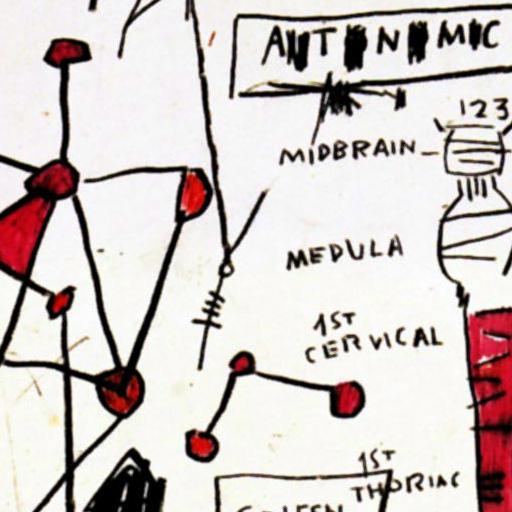 AUTONOMIC
123
MIDBRAIN
MEDULA
1ST
CERVICAL
1ST
THORIAC